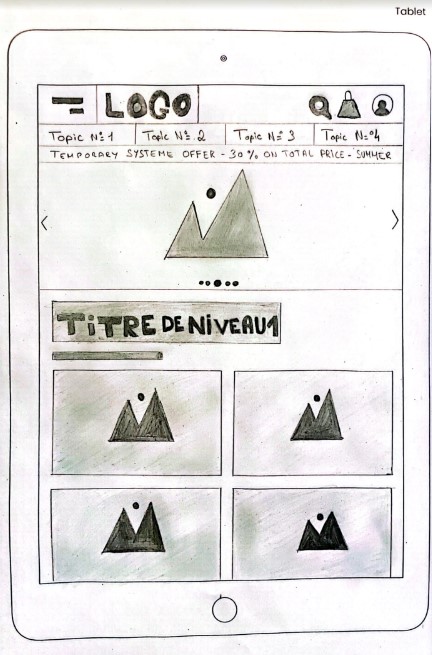 Tablet
LOGO
Topic N°1 Topic N°2 Topic N°3 Topic N°4
TEMPORARY SYSTEME OFFER - 30% ON TOTAL PRICE - SUMMER
TiTRE DE NiVEAU1